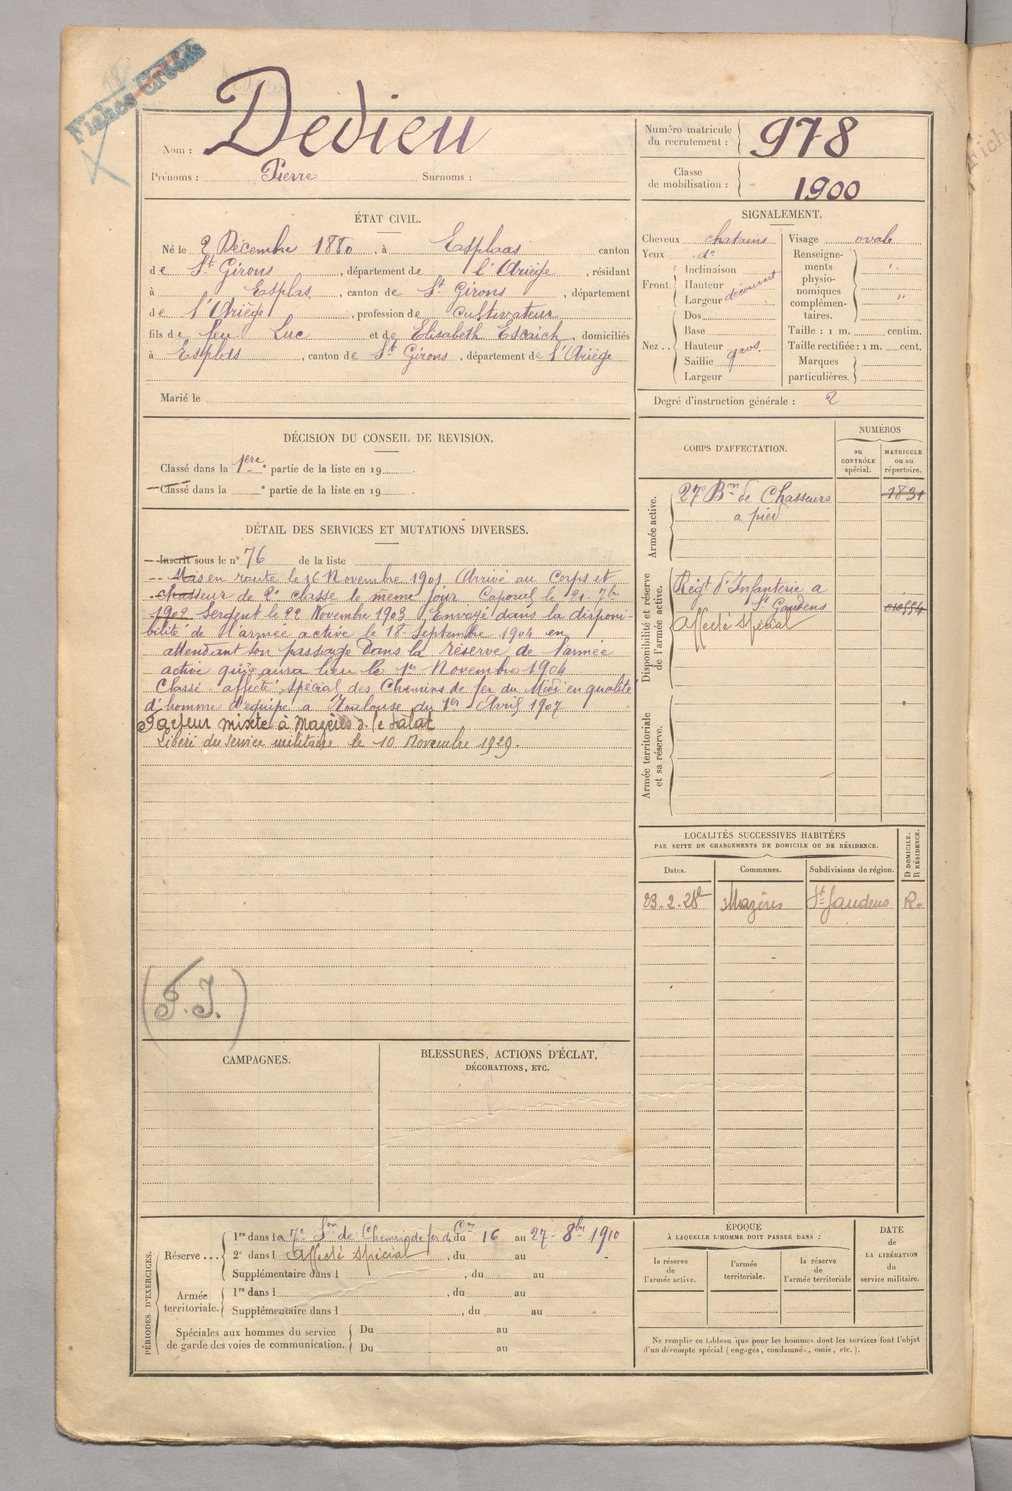 Fiches Créées
Nom : Dedieu
Prénoms : Pierre Surnoms :
Numéro matricule du recrutement : 978
Classe de mobilisation : 1900
ÉTAT CIVIL.
Né le 2 Décembre 1880, à Esplaas canton
de St Girons, département de l'Ariège, résidant
à Esplas, canton de St Girons, département
de l'Ariège, profession de cultivateur
fils de feu Luc et de Elisabeth Escaich, domiciliés
à Esplas, canton de St Girons, département de l'Ariège
Marié le
SIGNALEMENT.
Cheveux chatains
Yeux do
Front. Inclinaison
Hauteur découvert
Largeur
Nez .. Dos
Base
Hauteur gros
Saillie
Largeur
Visage ovale
Renseignements physionomiques complémentaires. "
"
Taille : 1 m. centim.
Taille rectifiée : 1 m. cent.
Marques particulières.
Degré d'instruction générale : 2
DÉCISION DU CONSEIL DE REVISION.
Classé dans la 1ere partie de la liste en 19
Classé dans la e partie de la liste en 19
DÉTAIL DES SERVICES ET MUTATIONS DIVERSES.
Inscrit sous le n° 76 de la liste
Mis en route le 16 Novembre 1901 Arrivé au Corps et
chasseur de 2e classe le même jour Caporal le 21 7bre
1902 Sergent le 22 Novembre 1903 Envoyé dans la disponi-
bilité de l'armée active le 18 Septembre 1904 en
attendant son passage dans la réserve de l'armée
active qui aura lieu le 1er Novembre 1904
Classé affecté spécial des Chemins de fer du Midi en qualité
d'homme d'équipe à Toulouse du 1er Avril 1907
Facteur mixte à Mazères s. le Salat
Libéré du service militaire le 10 Novembre 1929.
CORPS D'AFFECTATION.
NUMÉROS
au CONTRÔLE spécial.
MATRICULE ou au répertoire.
Armée active.
27e Bon de Chasseurs 1831
à pied
Disponibilité et réserve de l'armée active.
Régt d'Infanterie à
St Gaudens 010554
affecté spécial
Armée territoriale et sa réserve.
LOCALITÉS SUCCESSIVES HABITÉES
PAR SUITE DE CHANGEMENTS DE DOMICILE OU DE RÉSIDENCE.
Dates. Communes. Subdivisions de région. D DOMICILE. R RÉSIDENCE.
23-2-28 Mazères St Gaudens R.
(S. J.)
CAMPAGNES.
BLESSURES, ACTIONS D'ÉCLAT,
DÉCORATIONS, ETC.
PÉRIODES D'EXERCICES.
Réserve ... 1re dans la 7e Son de Chemin de fer de Cne du 16 au 27-8bre 1910
2e dans l affecté spécial, du au
Supplémentaire dans l , du au
Armée territoriale. 1re dans l , du au
Supplémentaire dans l , du au
Spéciales aux hommes du service
de garde des voies de communication. Du au
Du au
ÉPOQUE
À LAQUELLE L'HOMME DOIT PASSER DANS :
la réserve de l'armée active.
l'armée territoriale.
la réserve de l'armée territoriale
DATE DE LA LIBÉRATION du service militaire.
Ne remplir ce tableau que pour les hommes dont les services font l'objet
d'un décompte spécial (engagés, condamnés, omis, etc.).